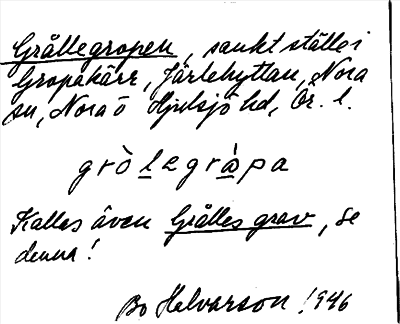 Grållegropen, sankt ställe i
Gropakärr, Järlehyttan, Nora
sn, Nora o Hjulsjö hd, Ör. l.
grò l e gràpa
Kallas även Grålles grav, se
denna!
Bo Halvarson 1946